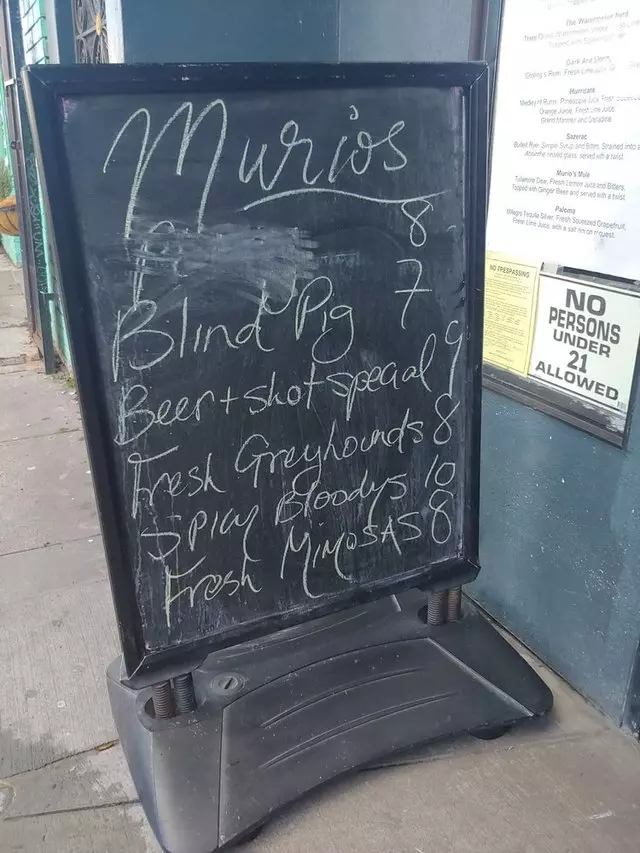 Murios
8
Blind Pig 7
Beer + shot special 9
Fresh Greyhounds 8
Spicy Bloodys 10
Fresh MIMOSAS 8
The Watermelon
Dark And Stormy
Gosling's Rum, Fresh Lime
Hurricane
Medley of Rums, Pineapple Juice, Fresh
Orange Juice, Fresh Lime Juice
Grand Marnier and Grenadine
Sazerac
Bulleit Rye, Simple Syrup and Bitters, Strained into a
Absinthe rinsed glass, served with a twist.
Murio's Mule
Tullamore Dew, Fresh Lemon Juice and Bitters,
Topped with Ginger Beer and served with a twist.
Paloma
Milagro Tequila Silver, Fresh Squeezed Grapefruit,
Fresh Lime Juice, with a salt rim on request.
NO TRESPASSING
NO
PERSONS
UNDER
21
ALLOWED